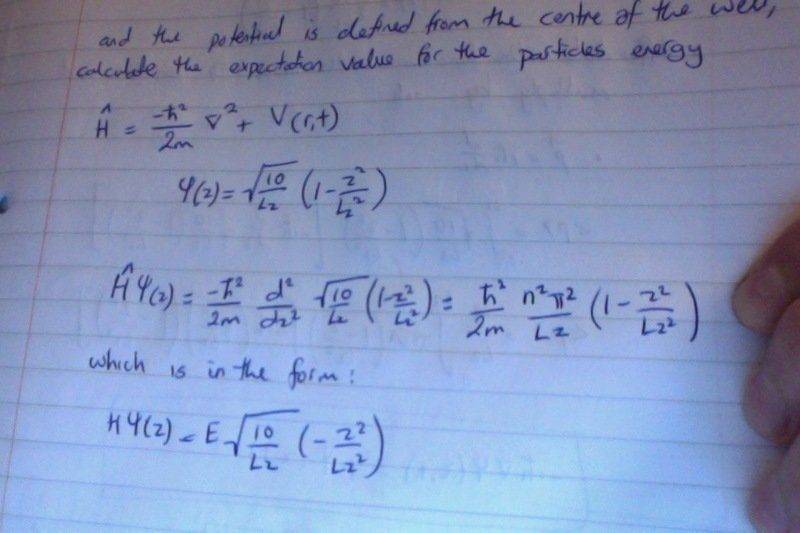 and the potential is defined from the centre of the well,
calculate the expectation value for the particles energy
Ĥ = -ħ²/2m ∇² + V(r,t)
Ψ(z) = √(10/Lz) (1 - z²/Lz²)
ĤΨ(z) = -ħ²/2m d²/dz² √(10/Lz) (1 - z²/Lz²) = ħ²/2m n²π²/Lz (1 - z²/Lz²)
which is in the form:
HΨ(z) = E √(10/Lz) (- z²/Lz²)